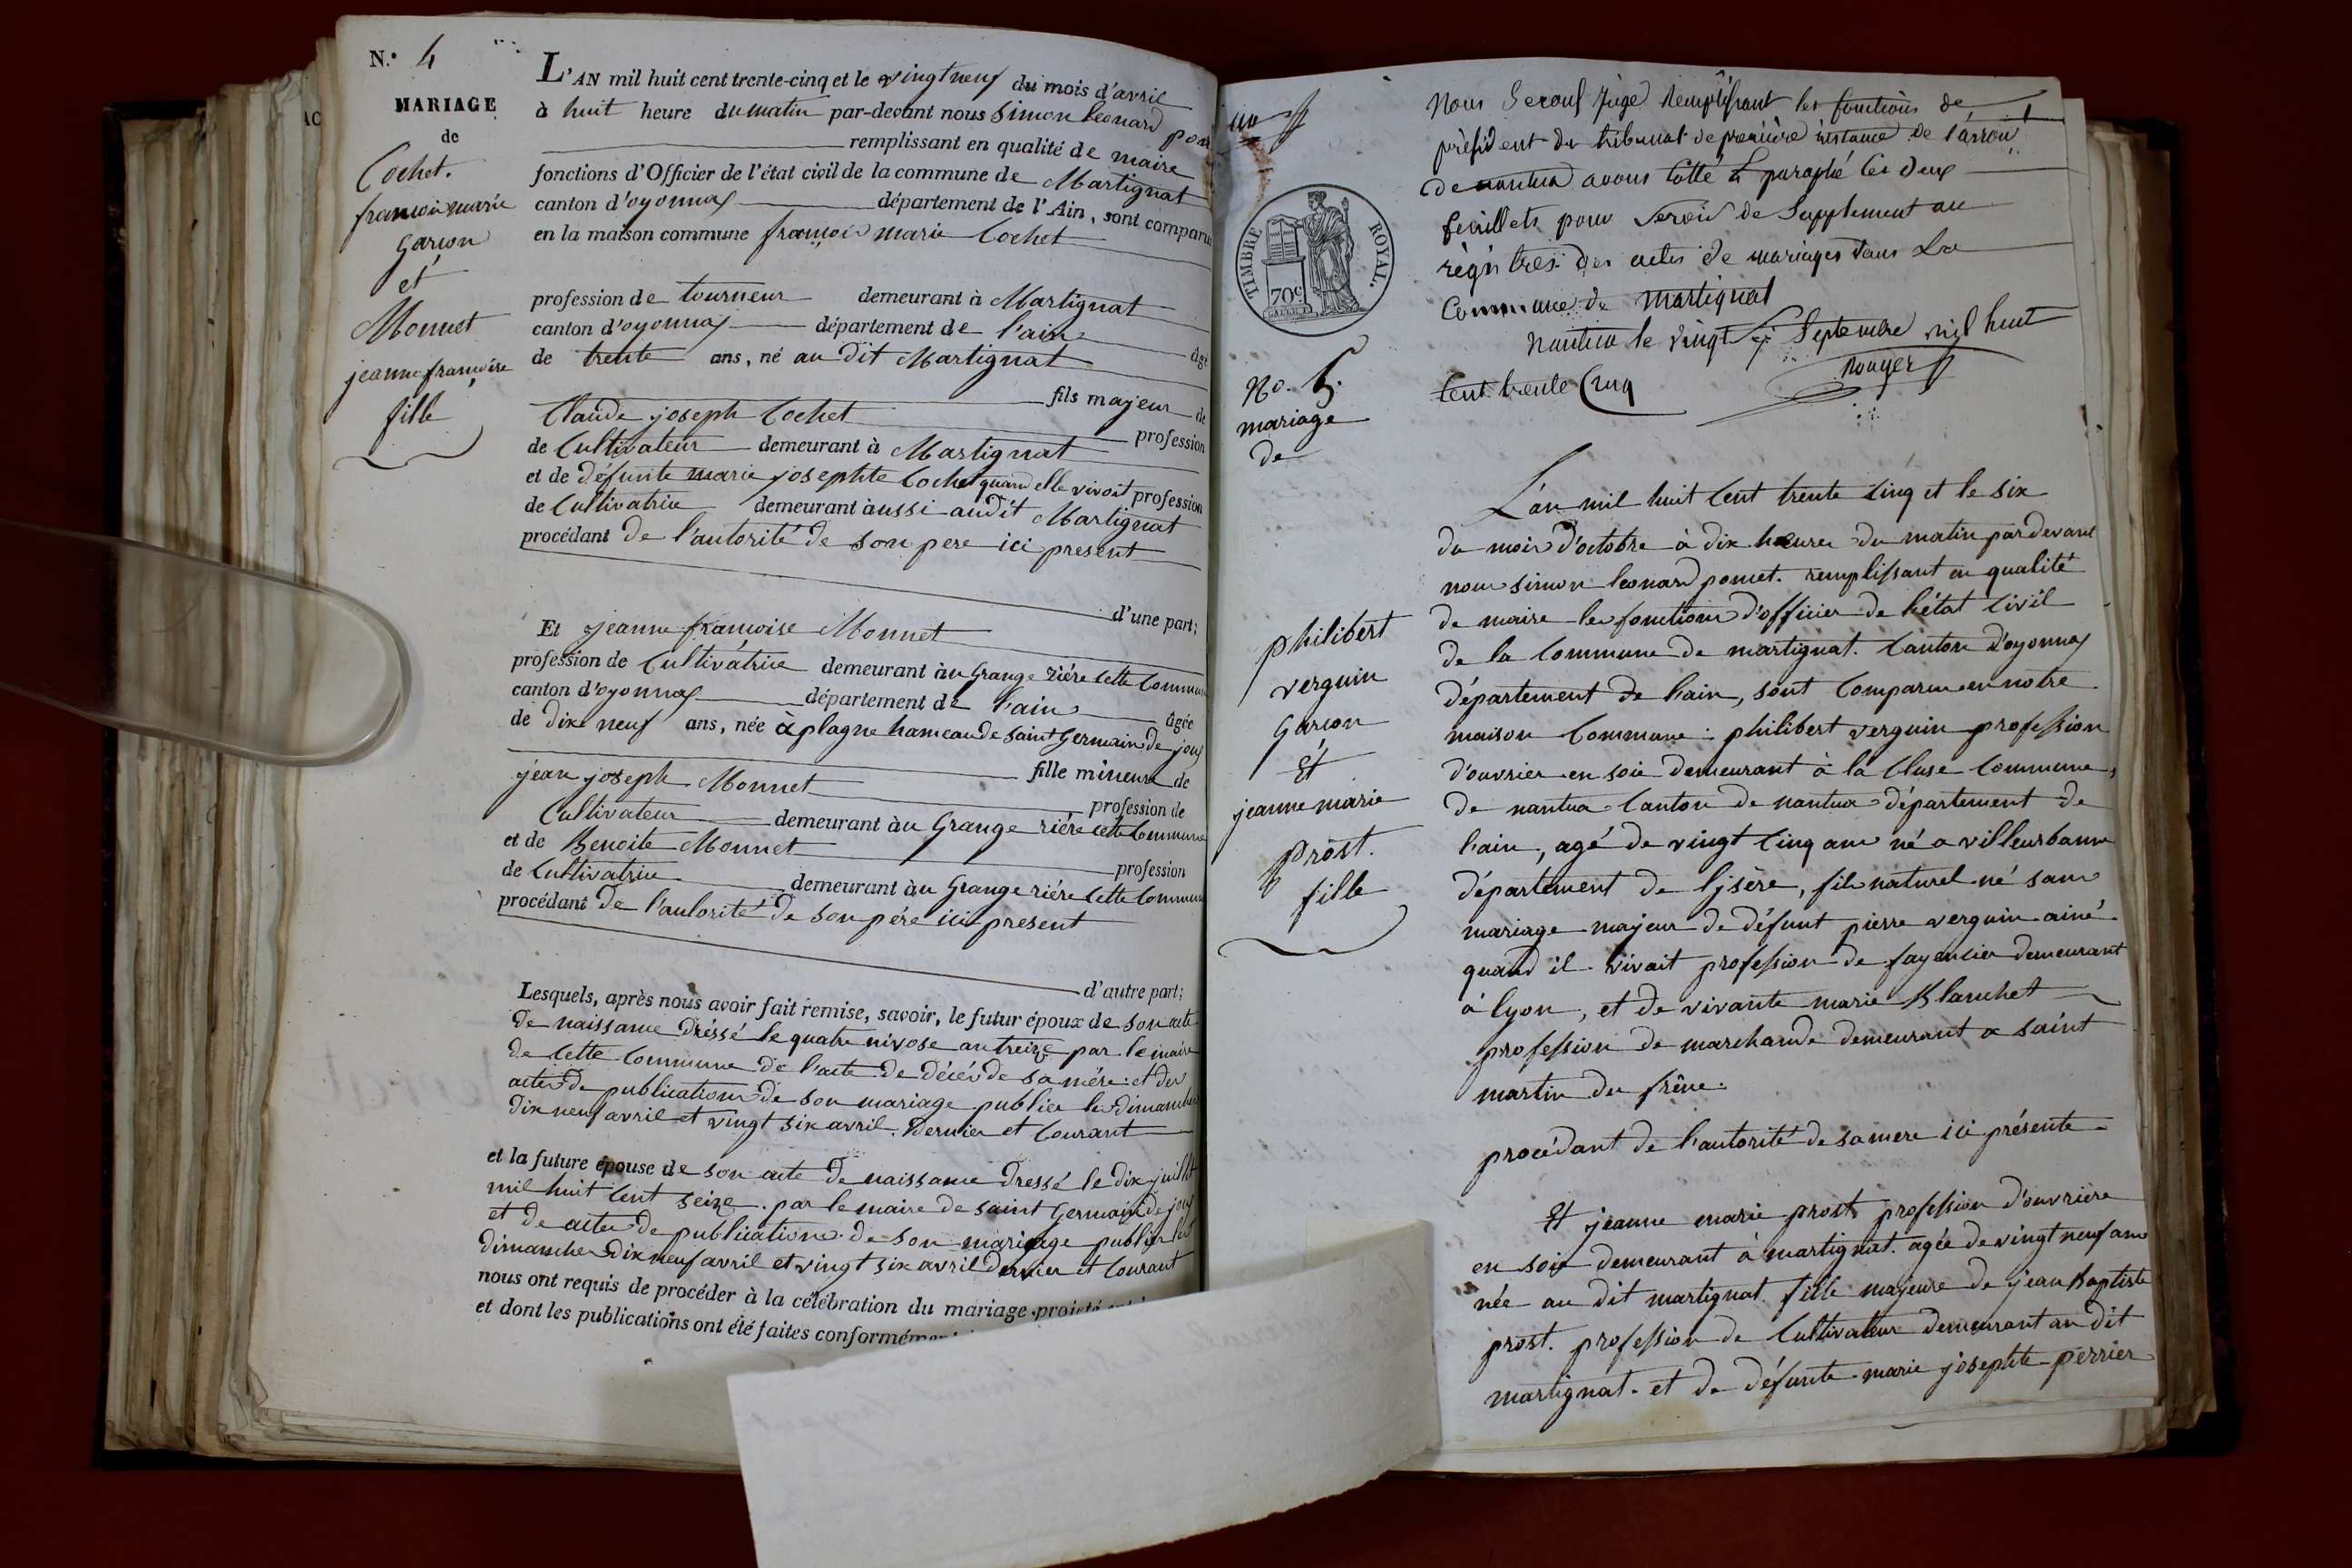 N.° 4
MARIAGE
de
Cochet.
francois marie
garcon
et
Monnet
jeanne francoise
fille
L'AN mil huit cent trente-cinq et le vingt neuf du mois d'avril
à huit heure du matin par-devant nous Simon leonard
remplissant en qualité de maire
fonctions d'Officier de l'état civil de la commune de Martignat
canton d'oyonnax département de l'Ain, sont comparus
en la maison commune francois marie Cochet
profession de tourneur demeurant à Martignat
canton d'oyonnax département de l'ain âgé
de trente ans, né au dit Martignat
fils majeur de
Claude joseph Cochet profession
de Cultivateur demeurant à Martignat
et de défunte marie josephte Cochet quand elle vivoit profession
de Cultivatrice demeurant aussi audit Martignat
procédant de l'autorité de son pere ici present
d'une part;
Et jeanne francoise Monnet
profession de Cultivatrice demeurant au Grange riére cette Commune
canton d'oyonnax département de l'ain âgée
de dix neuf ans, née à plagne hameau de saint Germain de joux
fille mineure de
jean joseph Monnet profession de
Cultivateur demeurant au Grange riére cette Commune
et de Benoite Monnet profession
de Cultivatrice demeurant au Grange riére cette Commune
procédant de l'autorité de son pére ici present
d'autre part;
Lesquels, après nous avoir fait remise, savoir, le futur époux de son acte
de naissance dréssé le quatre nivose an treize par le maire
de cette Commune de l'acte de décés de sa mére et des
actes de publications de son mariage publier les dimanches
dix neuf avril et vingt six avril dernier et Courant
et la future épouse de son acte de naissance dressé le dix juillet
mil huit Cent seize par le maire de saint Germain de joux
et de actes de publications de son mariage publier les
dimanches dix neuf avril et vingt six avril dernier et Courant
nous ont requis de procéder à la célébration du mariage projeté
et dont les publications ont été faites
un
TIMBRE ROYAL.
70c
Nous Juge remplissant les fonctions de
président du tribunal de première instance de l'arron.t
de nantua avons Cotté & paraphé les deux
feuillets pour servir de supplement au
régistres des actes de mariages dans la
Commune de Martignat
Nantua le vingt Septembre mil huit
Cent trente Cinq Rouyer
No. 5.
mariage
de
philibert
verguin
garcon
Et
jeanne marie
prost.
fille
L'an mil huit Cent trente Cinq et le six
du mois d'octobre à dix heures du matin pardevant
nous simon leonard pomet. remplissant en qualité
de maire les fonctions d'officier de l'état Civil
de la Commune de martignat. Canton d'oyonnax
département de l'ain, sont Comparus en notre
maison Commune : philibert verguin profession
d'ouvrier en soie demeurant à la Cluse Commune,
de nantua Canton de nantua département de
l'ain, agé de vingt Cinq ans né a villeurbanne
département de l'jsère, fils naturel né sans
mariage majeur de défunt pierre verguin ainé
quand il vivait profession de fayencier demeurant
à lyon, et de vivante marie Blanchet
profession de marchande demeurant a saint
martin du frêne.
procédant de l'autorité de sa mere ici présente
Et jeanne marie prost. profession d'ouvriere
en soie demeurant à martignat. agée de vingt neuf ans
née au dit martignat fille majeure de jean Baptiste
prost. profession de Cultivateur demeurant au dit
martignat. et de défunte marie josephte perrier